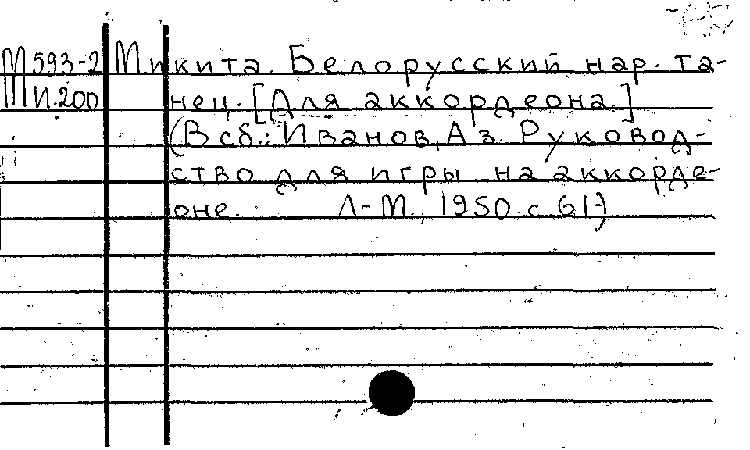 М593-2 Микита. Белорусский нар. та-
И.200 нец. [Для аккордеона.]
(В сб.: Иванов, Аз. Руковод-
ство для игры на аккорде-
оне. Л-М., 1950. с. 61)